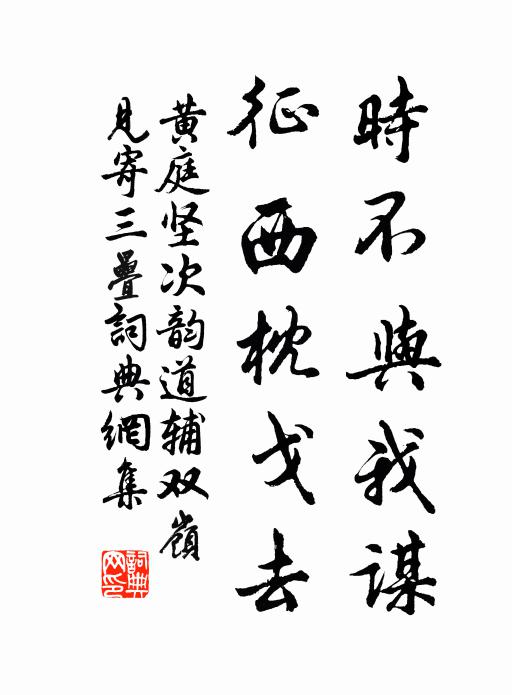 時不與我謀
征西枕戈去
黄庭坚次韵道辅双嶺
見寄三疊詞典網集
詞典
网印